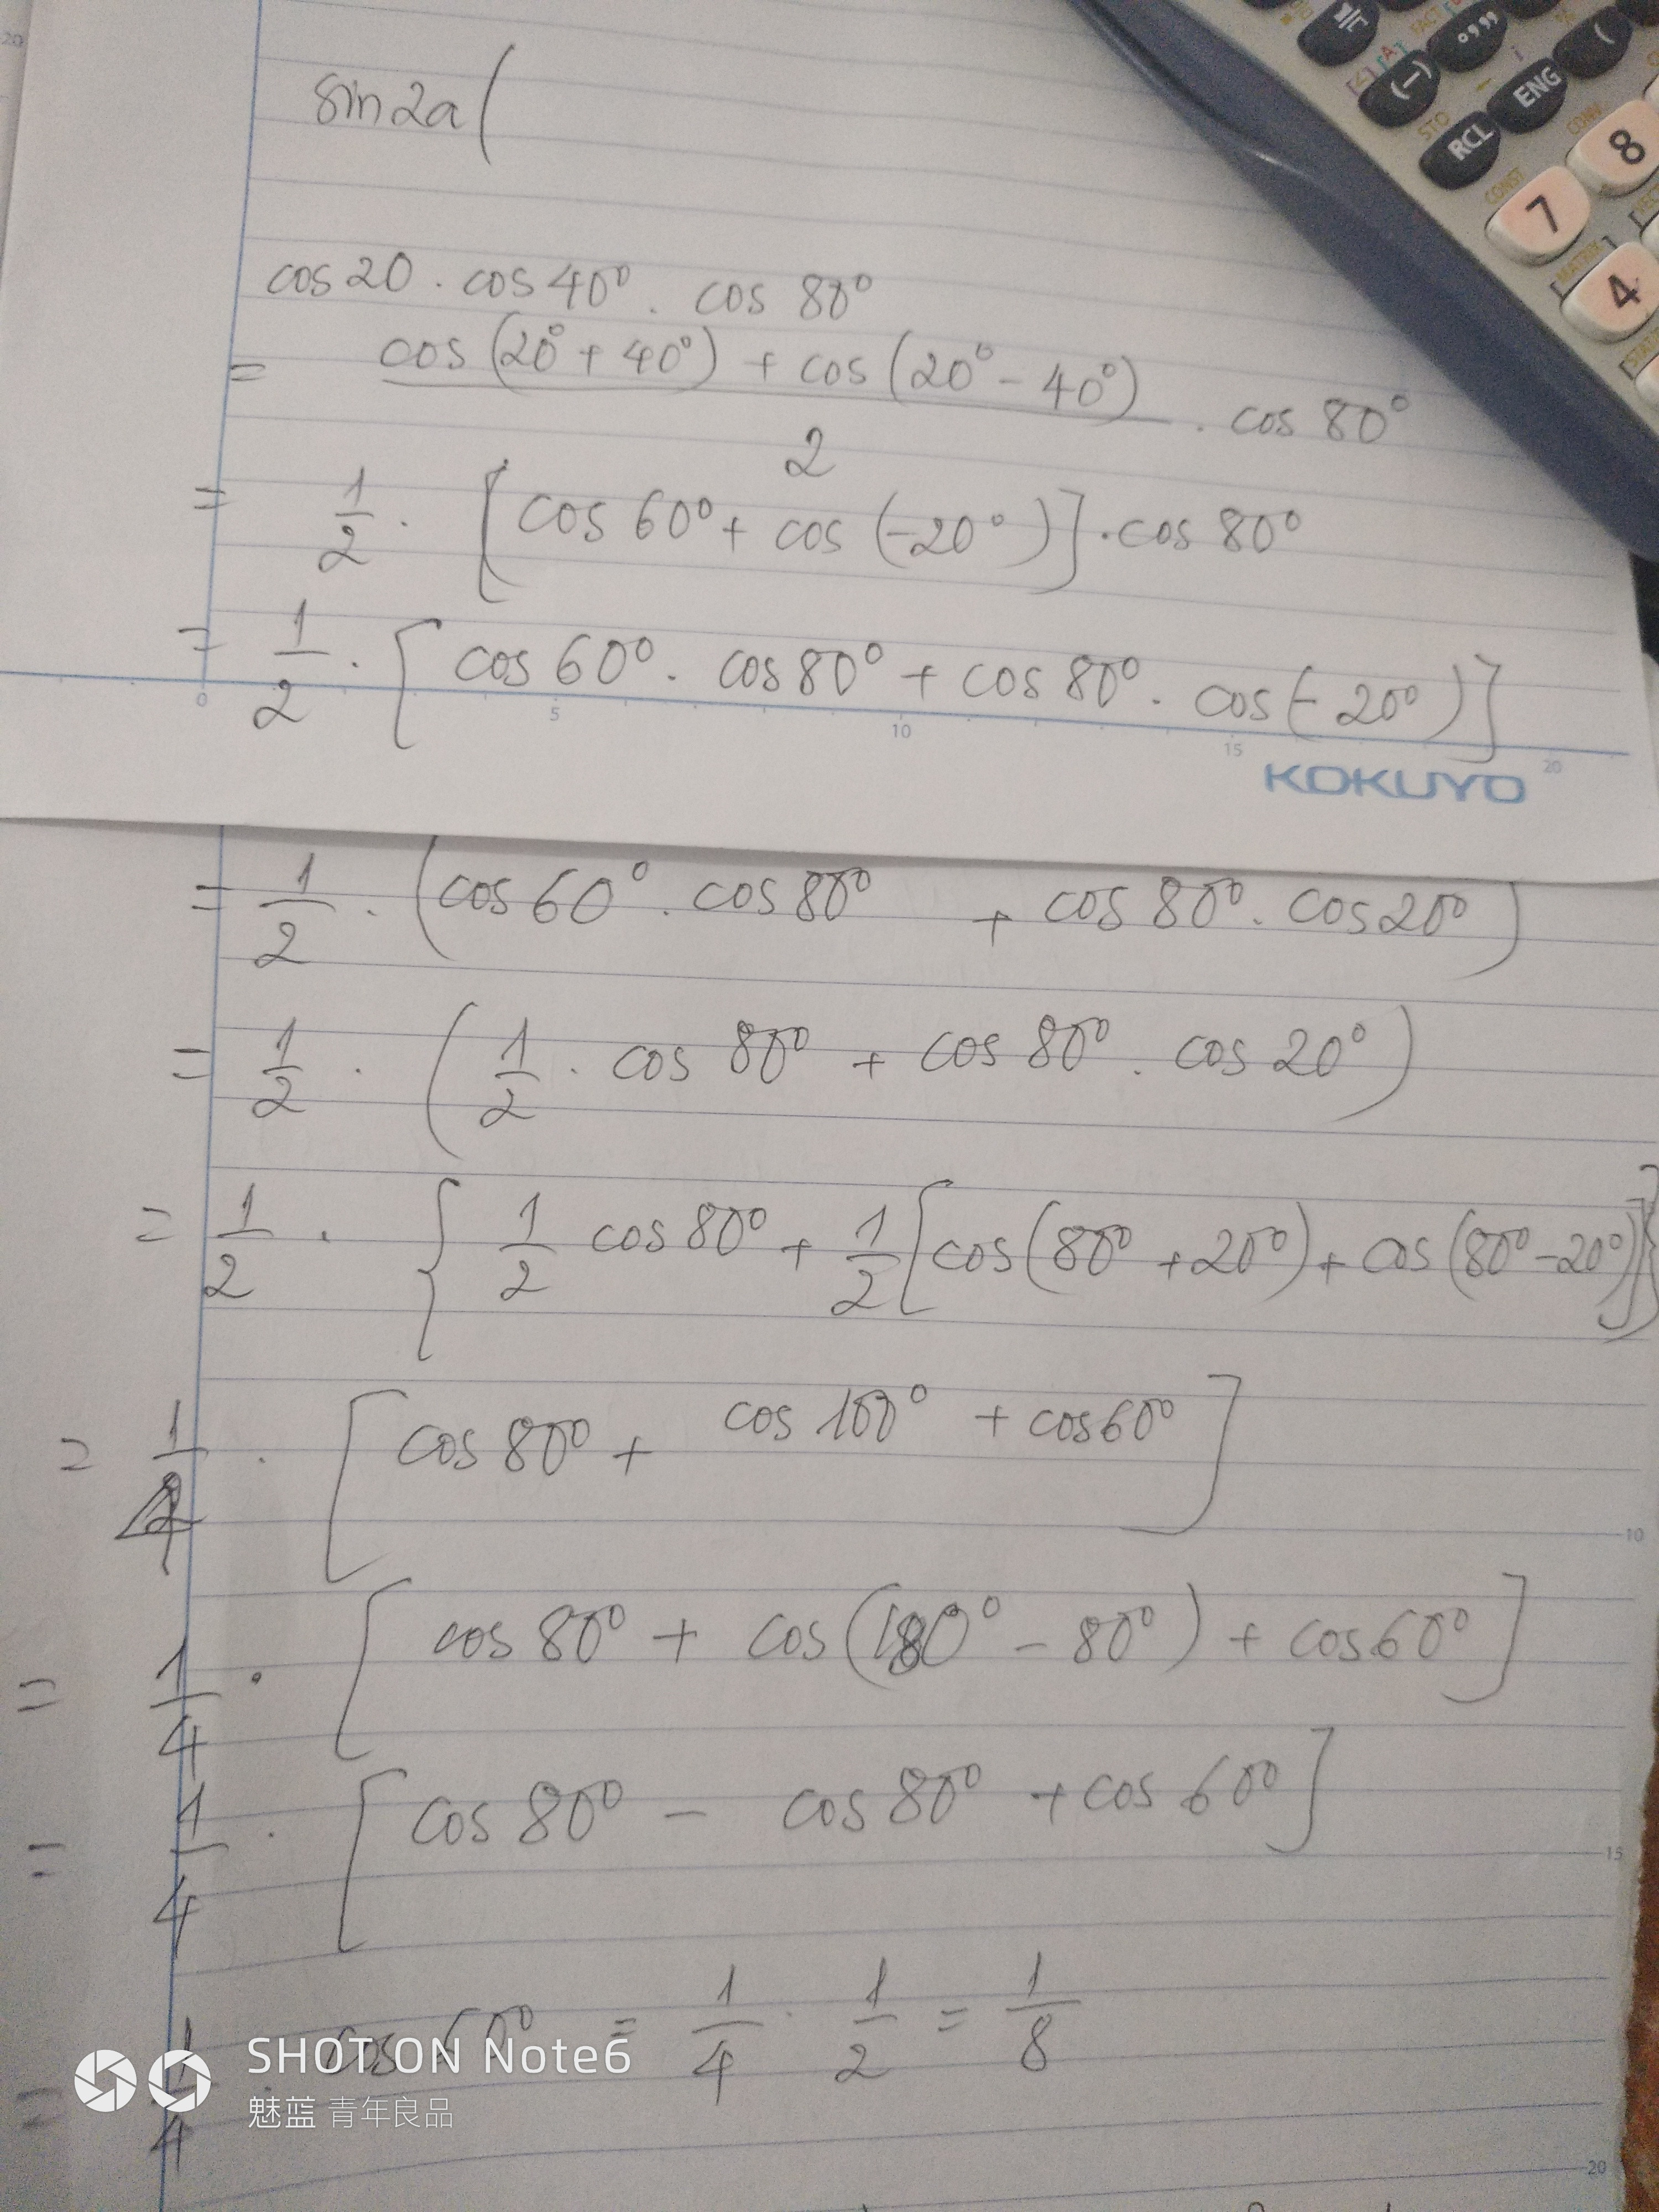 sin2a(
7
8
4
ENG
RCL
(–)
STO
CONST
MATRIX
FACT
cos 20 . cos 40° . cos 80°
= cos (20° + 40°) + cos (20° - 40°) / 2 . cos 80°
= 1/2 . [cos 60° + cos (-20°)] . cos 80°
= 1/2 . [cos 60° . cos 80° + cos 80° . cos(-20°)]
0 5 10 15 20
KOKUYO
= 1/2 . (cos 60° . cos 80° + cos 80° . cos 20°)
= 1/2 . (1/2 . cos 80° + cos 80° . cos 20°)
= 1/2 . {1/2 cos 80° + 1/2 [cos (80° + 20°) + cos (80° - 20°)]}
= 1/4 . [cos 80° + cos 100° + cos 60°]
10
= 1/4 . [cos 80° + cos (180° - 80°) + cos 60°]
= 1/4 . [cos 80° - cos 80° + cos 60°]
15
= 1/4 . cos 60° = 1/4 . 1/2 = 1/8
SHOT ON Note6
魅蓝 青年良品
20